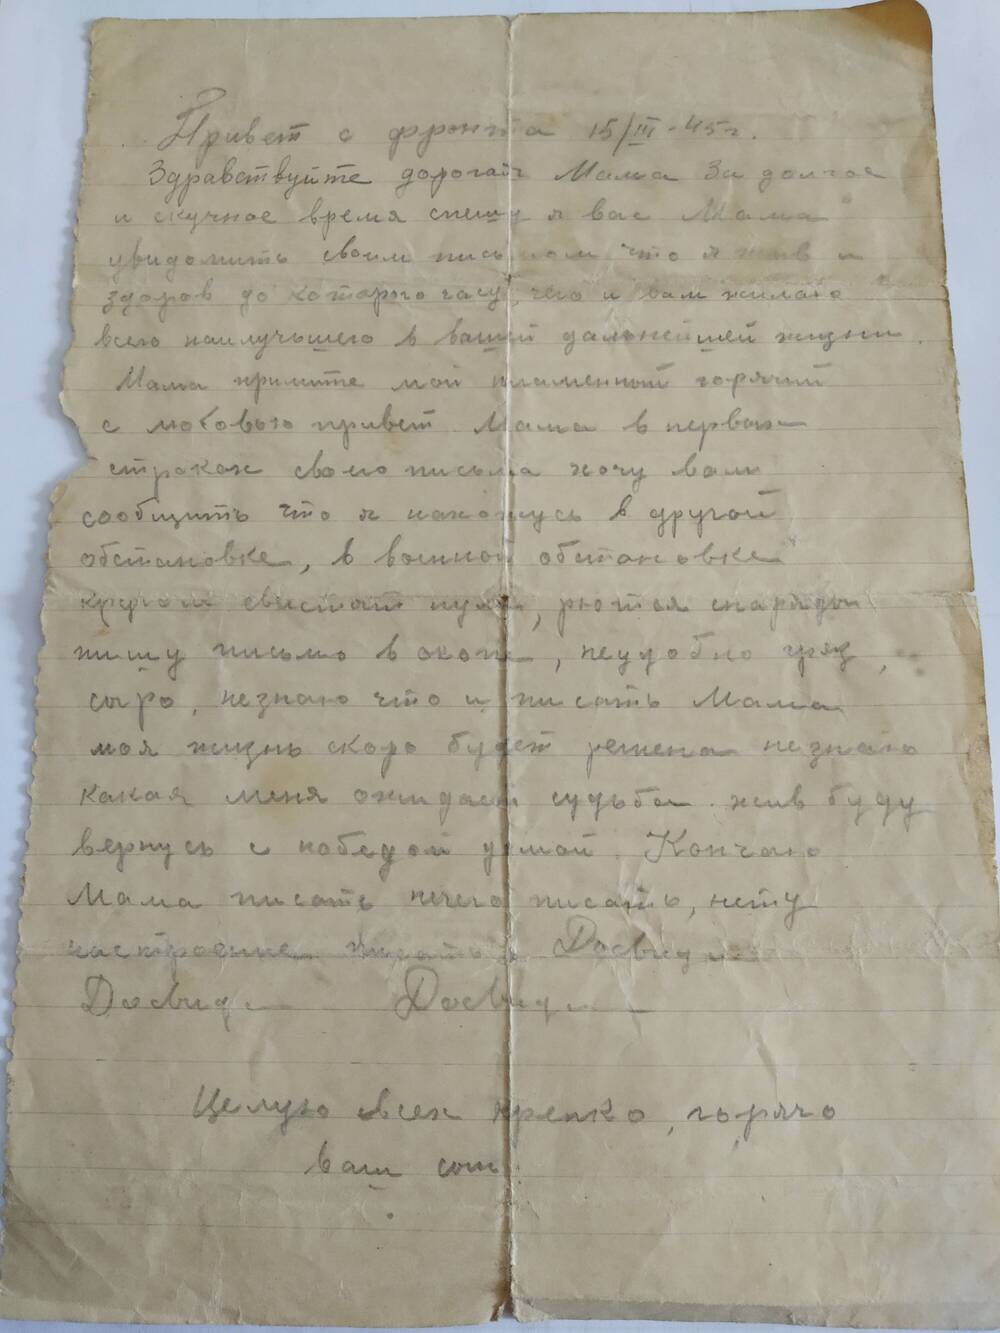 Привет с фронта 15/III-45г.
Здравствуйте дорогая Мама За долгое
и скучное время спешу я вас Мама
уведомить своим письмом что я жив и
здоров до которого часу, чего и вам желаю
всего наилучшего в вашей дальнейшей жизни.
Мама примите мой пламенный горячий
с любовью привет Мама в первых
строках своего письма хочу вам
сообщить что я нахожусь в другой
обстановке, в военной обстановке
кругом свистят пули, рютса снаряды
пишу письмо в окопе, неудобно гряз,
сыро, незнаю что и писать Мама
моя жизнь скоро будет решена незнаю
какая меня ожидает судьба. жив буду
вернусь с победой домой. Кончаю
Мама писать нечего писать, нету
настроение писать. Досвид
Досвид Досвид
Целую всех крепко, горячо
ваш сын